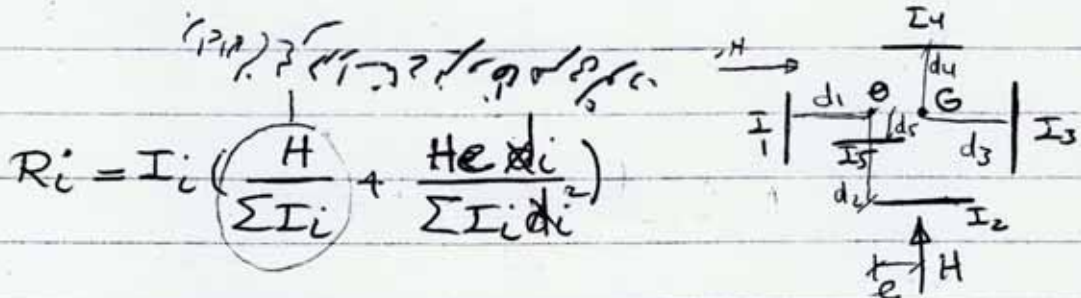 H
R_i = I_i ( H / ΣI_i + He d_i / ΣI_i d_i² )
I4
d4
I1 d1 θ G I3
d5
I5 d3
d2
I2
e H